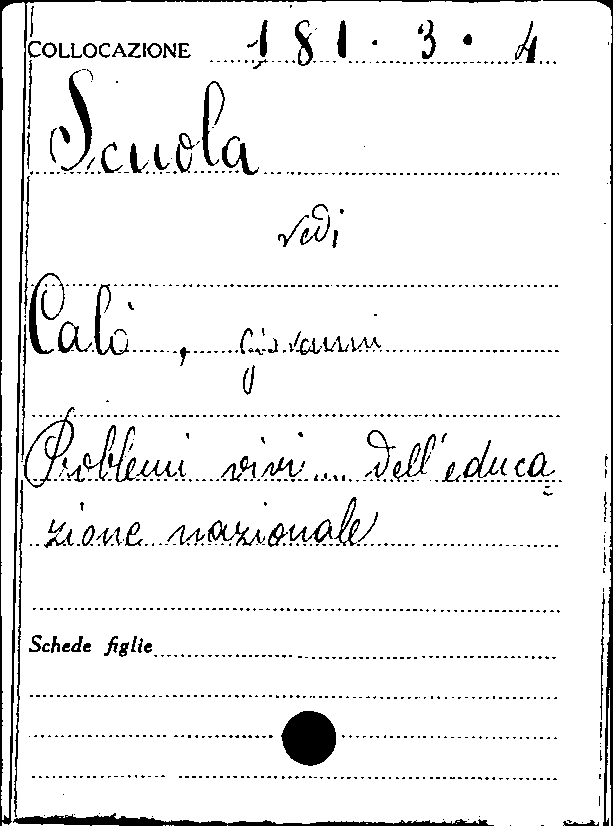 COLLOCAZIONE 181.3.4
Scuola
vedi
Calò, Giovanni
Problemi vivi... dell'educa=
zione nazionale
Schede figlie